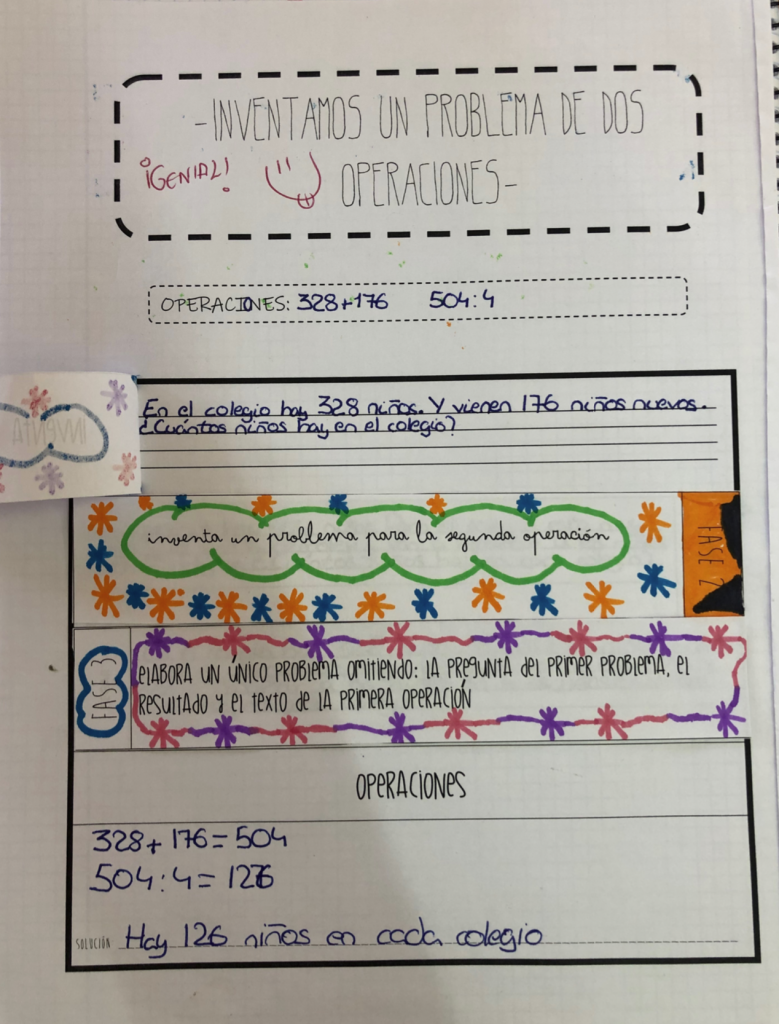 -INVENTAMOS UN PROBLEMA DE DOS
¡GENIAL!
OPERACIONES-
OPERACIONES: 328+176 504:4
INVENTA
En el colegio hay 328 niños. Y vienen 176 niños nuevos.
¿Cuántos niños hay en el colegio?
inventa un problema para la segunda operación
FASE 2
FASE 3
ELABORA UN ÚNICO PROBLEMA OMITIENDO: LA PREGUNTA DEL PRIMER PROBLEMA, EL
RESULTADO Y EL TEXTO DE LA PRIMERA OPERACIÓN
OPERACIONES
328+176=504
504:4=126
SOLUCIÓN Hay 126 niños en cada colegio